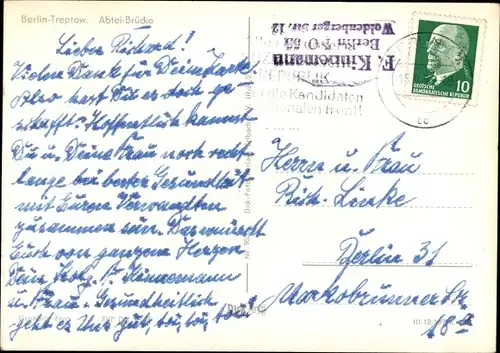 Berlin-Treptow. Abtei-Brücke
Lieber Richard!
Vielen Dank für Deine Karte.
Also hast Du es doch ge-
schafft! Hoffentlich kannst
Du u. Deine Frau noch recht
lange bei bester Gesundheit
mit Euren Verwandten
zusammen sein. Das wünscht
Euch von ganzem Herzen
Dein
u. Frau. Gesundheitlich
geht es Uns gut, toi, toi, toi!
F. Kinnemann
Berlin NO 55
Woldenberger Str. 12
REPUBLIK
die Kandidaten
nalen Front!
10
DEUTSCHE
DEMOKRATISCHE REPUBLIK
Herrn u. Frau
Rich. Linke
Berlin 31
Markobrunner Str.
18a